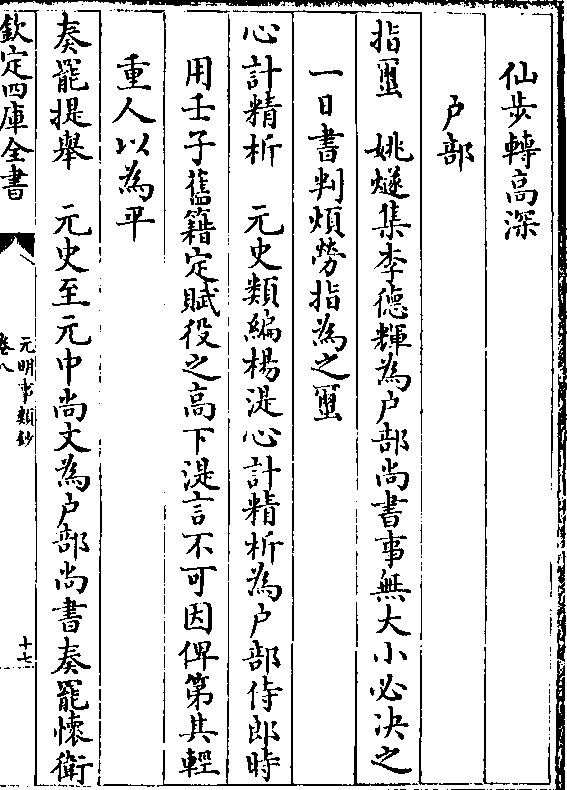 仙步轉高深
户部
指𤴁　姚燧集李德輝為户部尚書事無大小必决之
一日書判煩勞指為之𤴁
心計精析　元史類編楊湜心計精析為户部侍郎時
用壬子舊籍定賦役之高下湜言不可因俾第其輕
重人以為平
奏罷提舉　元史至元中尚文為户部尚書奏罷懷衛
欽定四庫全書
元明事類鈔
卷八
十七